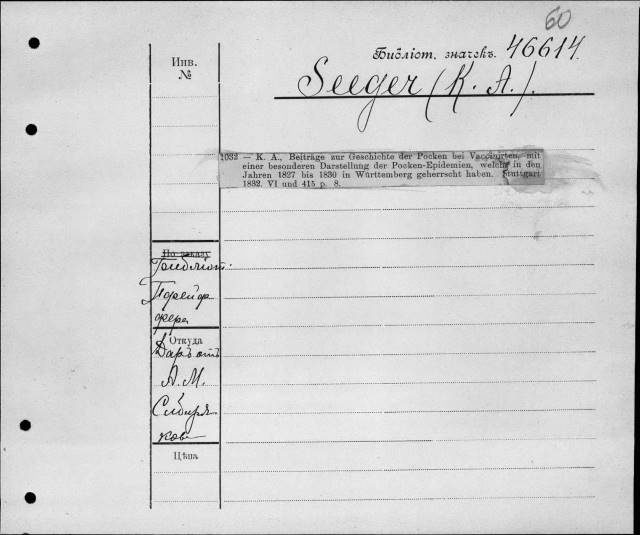 60
Библіот. значекъ. 46614.
Инв.
№
Seeger (K. A.).
1032 — K. A., Beiträge zur Geschichte der Pocken bei Vaccinirten, mit
einer besonderen Darstellung der Pocken-Epidemien, welche in den
Jahren 1827 bis 1830 in Württemberg geherrscht haben. Stuttgart
1832. VI und 415 p. 8.
По заказу
Библіот.
Пфейф
фера
Откуда
Даръ отъ
А. М.
Сибиря
кова
Цѣна